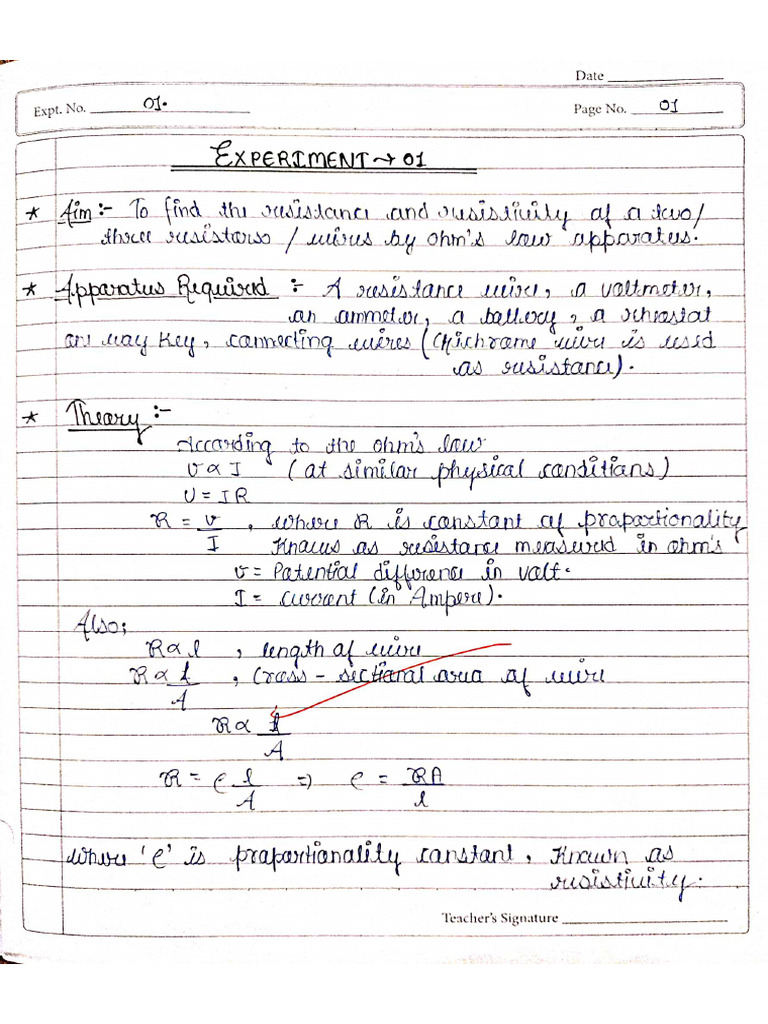 Date
Expt. No. 01.
Page No. 01
EXPERIMENT → 01
* Aim :- To find the resistance and resistivity of a two/
three resistorso / wires by ohm's law apparatus.
* Apparatus Required :- A resistance wire, a voltmeter,
an ammeter, a battery, a rheostat
one way key, connecting wires (Nichrome wire is used
as resistance).
* Theory :-
According to the ohm's law
V ∝ I (at similar physical conditions)
V = IR
R = V/I , where R is constant of proportionality
Known as resistance measured in ohm's
V = Potential difference in volt.
I = current (in Ampere).
Also;
R ∝ l , length of wire
R ∝ 1/A , Cross - sectional area of wire
R ∝ l/A
R = ρ l/A => ρ = RA/l
where 'ρ' is proportionality constant, Known as
resistivity.
Teacher's Signature